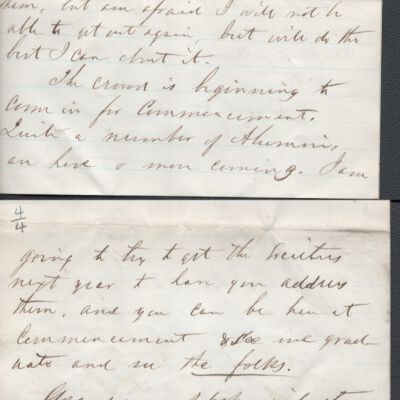 them, but am afraid I will not be
able to get out again, but will do the
best I can about it.
The crowd is beginning to
come in for Commencement.
Quite a number of Alumni,
are here & more coming. I am
4/4
going to try to get the Societies
next year to have you address
them, and you can be here at
Commencement & see me grad-
uate and see the folks.